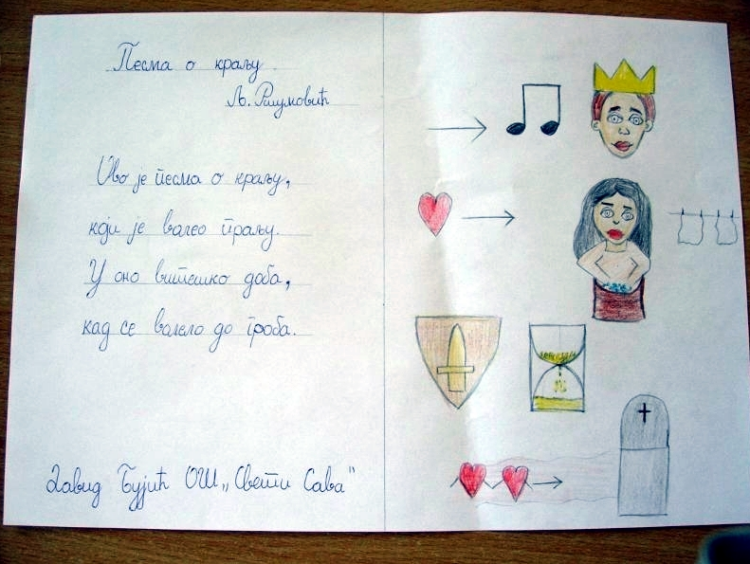 Песма о краљу
Љ. Ршумовић
Ово је песма о краљу,
који је волео праљу.
У оно витешко доба,
кад се волело до гроба.
Давид Бујић ОШ „Свети Сава“